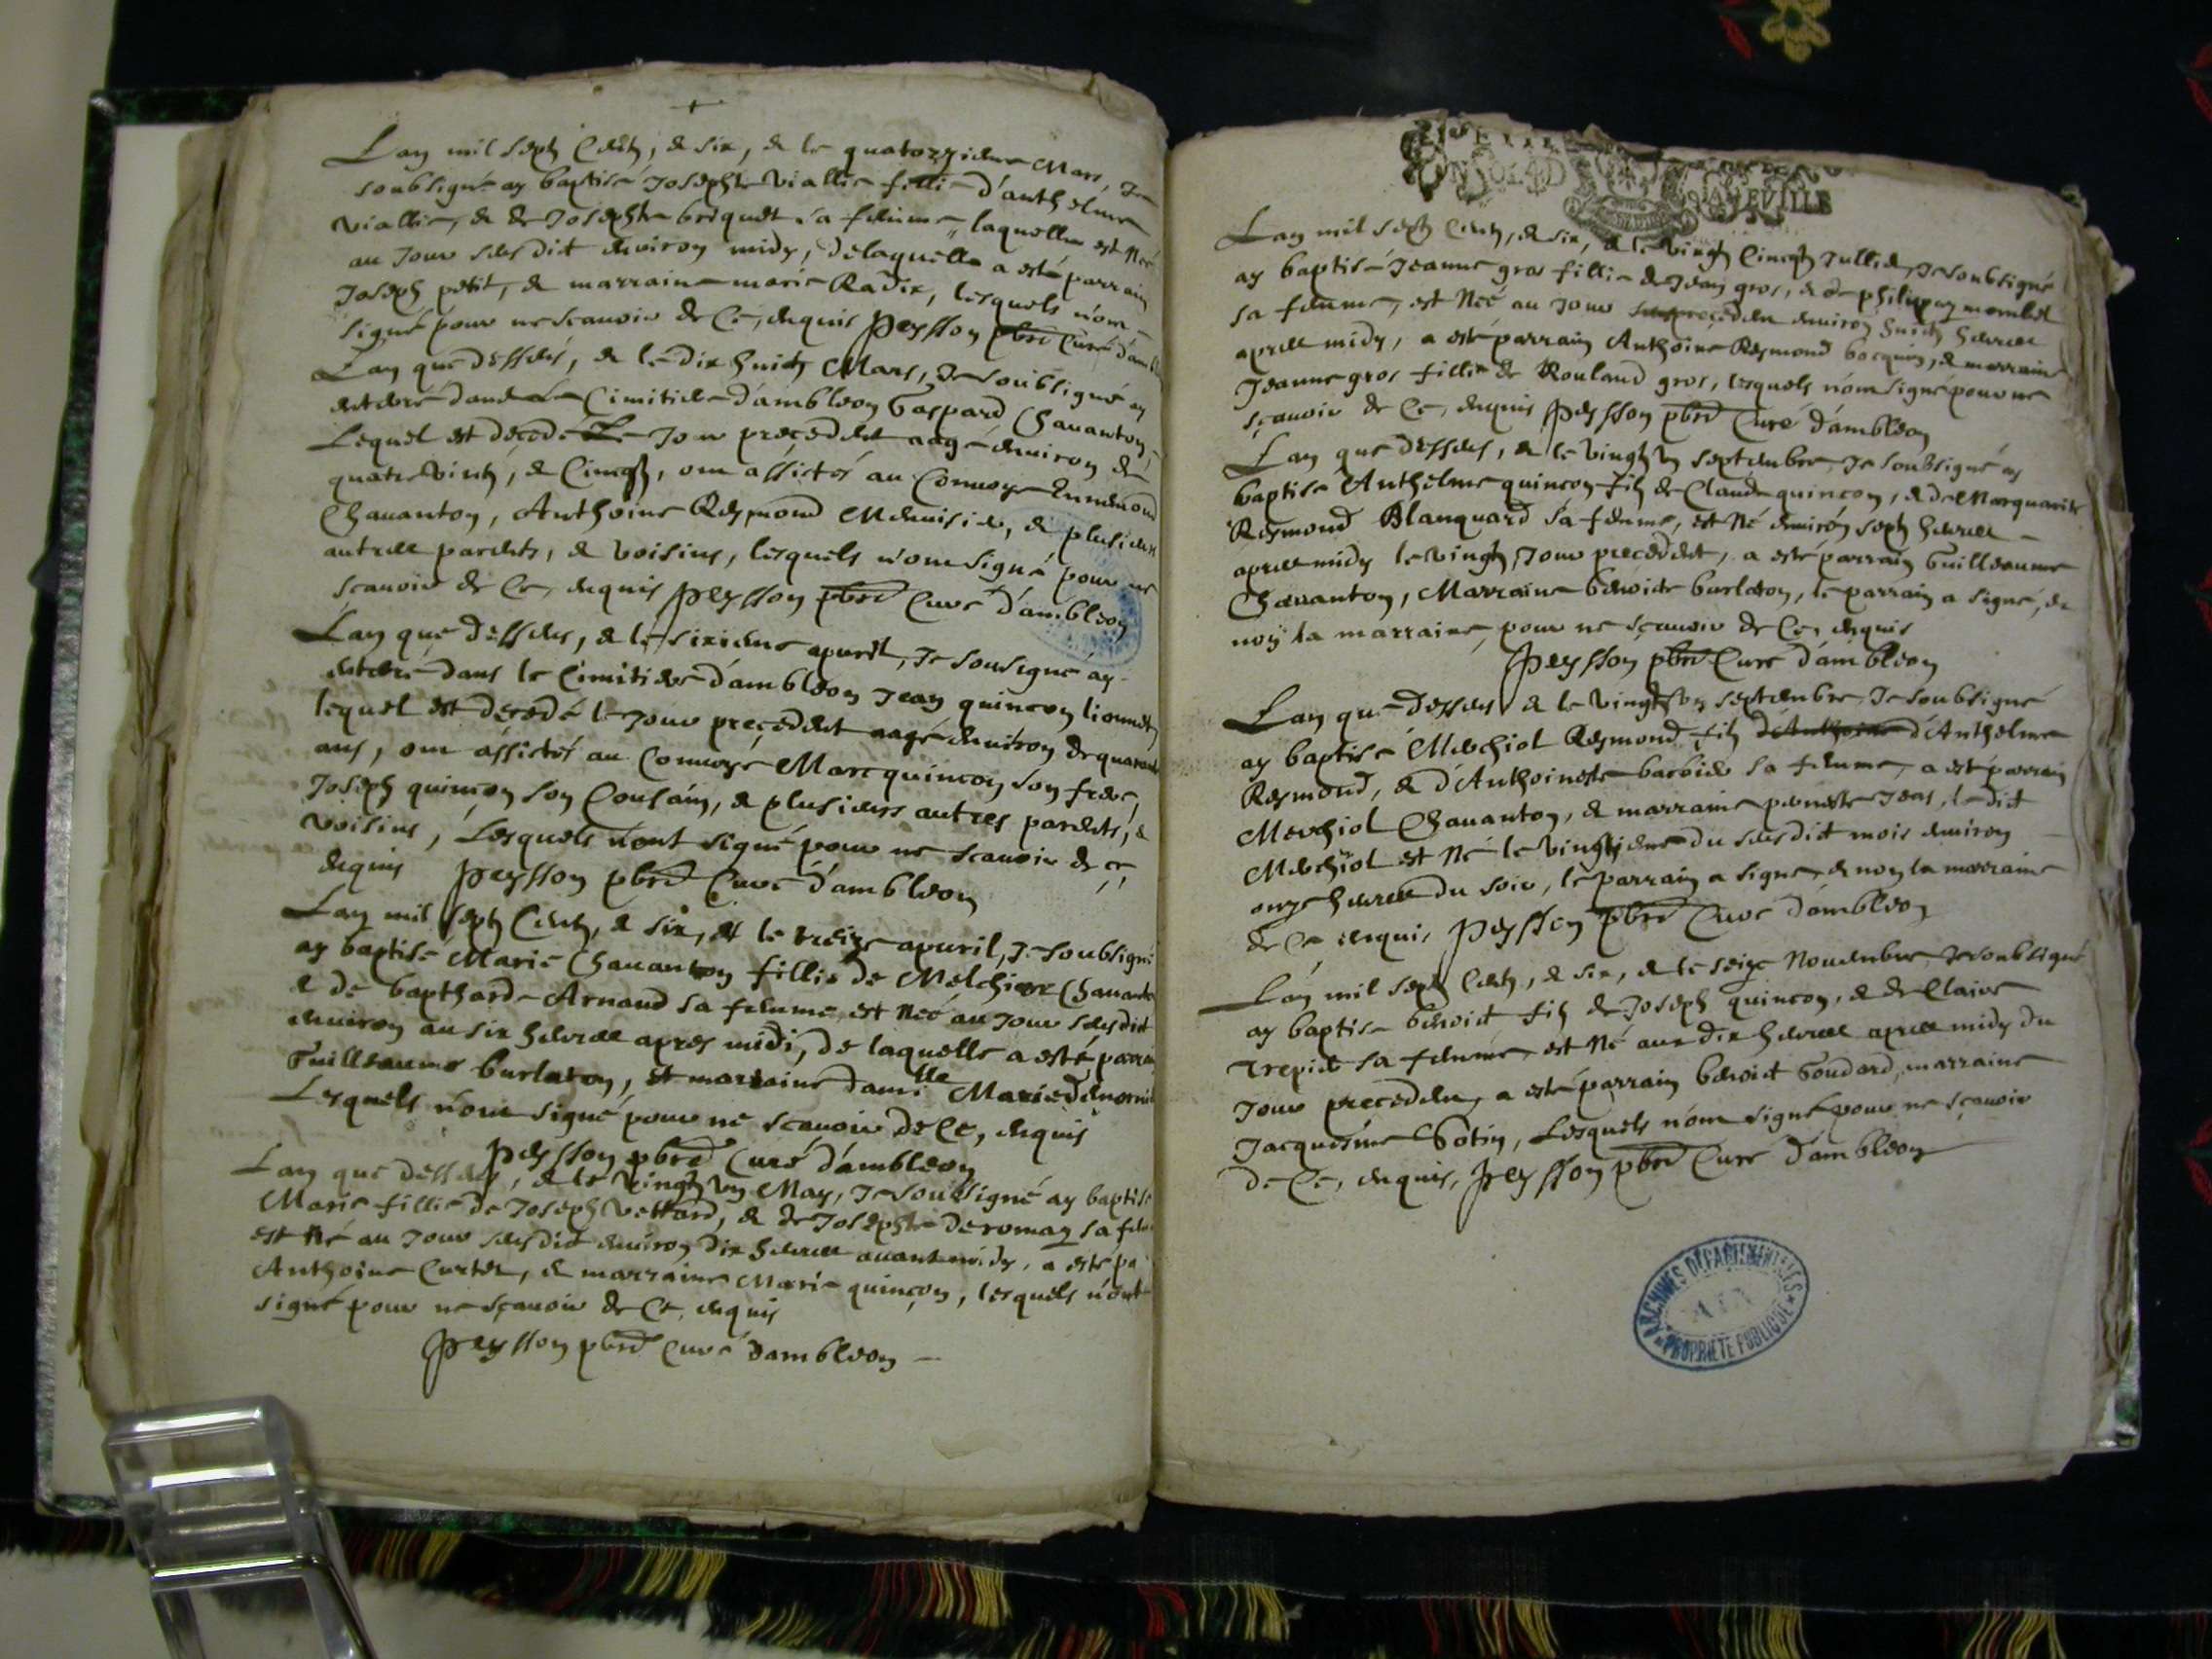 Lan mil sept Cents, & six, & le quatorzieme Mars, Je
soubsigné ay baptisé Josephte Viallie fillie d'anthelme
Viallie, & de Josephte briquet sa femme, laquelle est Neé
au Jour susdict environ midy, delaquelle a esté parrain
Joseph petit, & marraine marie Radix, lesquels n'ont
signé pour ne scauoir de Ce, enquis peysson pbre Curé d'am
Lan que dessus, & le dix huict Mars, Je soubsigné ay
enterré dans Le Cimitiere d'ambleon Gaspard Chauanton,
Lequel est decedé Le Jour precedent aagé enuiron de
quatre vints, & Cincq, ont assistés au Conuoye
Chauanton, Anthoine Reymond Menuisier, & plusieurs
autres parents, & voisins, lesquels n'ont signé pour ne
scauoir de Ce, enquis peysson pbre Curé d'ambleon
Lan que dessus, & le sixieme apuril, Je sousigné ay
enterré dans le Cimitiere d'ambleon Jean quincon lionnet,
lequel est decedé le Jour precedent aagé enuiron de quarante
ans, ont assistés au Conuoye Marc quincon son frere,
Joseph quincon son Cousain, & plusieurs autres parents, &
voisins, Lesquels n'ont signé pour ne scauoir de ce,
enquis peysson pbre Curé d'ambleon
Lan mil sept Cents, & six, & le treize apuril, Je soubsigné
ay baptisé Marie Chauanton fillie de Melchior Chauanton
& de bapthard Arnaud sa femme, est Neé au Jour susdict
enuiron au six heures apres midi, de laquelle a esté parrain
Guilleaume burlaton, et marraine dam:lle Marie
Lesquels n'ont signé pour ne scauoir de Ce, enquis
peysson pbre Curé d'ambleon
Lan que dessus, & le vingt un May, Je soubsigné ay baptisé
Marie fillie de Joseph Vettard, & de Josephte deroman sa
est Né au Jour susdict enuiron dix heures auant midy, a esté
Anthoine Curtet, & marraine Marie quinçon, lesquels n'ont
signé pour ne sçauoir de Ce, enquis
peysson pbre Curé d'ambleon
GAVEVILLE
Lan mil sept Cents, & six, & le vingt Cincq Jullied, Je soubsigné
ay baptisé Jeanne gros fillie de Jean gros, & de philippaz mombel
sa femme, est Neé au Jour precedent enuiron huict heures
apres midy, a esté parrain Anthoine Reymond bocquin, & marraine
Jeanne gros fillie de Rouland gros, lesquels n'ont signé pour ne
sçauoir de Ce, enquis peysson pbre Curé d'ambleon
Lan que dessus, & le vingt un septembre Je soubsigné ay
baptisé Anthelme quincon fils de Claude quincon, & de Marguarite
Reymond Blanquard sa femme, est Né enuiron sept heures
apres midy le vingt Jour precedent, a esté parrain Guilleaume
Chauanton, Marraine benoite burlaton, le parrain a signé, &
non la marraine, pour ne sçauoir de Ce, enquis
peysson pbre Curé d'ambleon
Lan que dessus & le vingt septembre Je soubsigné
ay baptisé Melchiol Reymond fils d'Anthoine d'Anthelme
Reymond, & d'Anthoineste barbier sa femme, a esté parrain
Merchiol Chauanton, & marraine pernette Jeas, le dict
Melchiol est Né le vingtieme du susdict mois enuiron
onze heures du soir, le parrain a signé, & non la marraine
de Ce, enquis peysson pbre Curé d'ambleon
Lan mil sept Cents, & six, & le seize Nouembre, Je soubsigné
ay baptisé benoict fils de Joseph quincon, & de Claire
Trepiet sa femme, est Né aux dix heures apres midy du
Jour precedent, a esté parrain benoict Goudard, marraine
Jacquesme Gotin, Lesquels n'ont signé pour ne sçauoir
de Ce, enquis, peysson pbre Curé d'ambleon
ARCHIVES DÉPARTEMENTALES
AIN
PROPRIÉTÉ PUBLIQUE